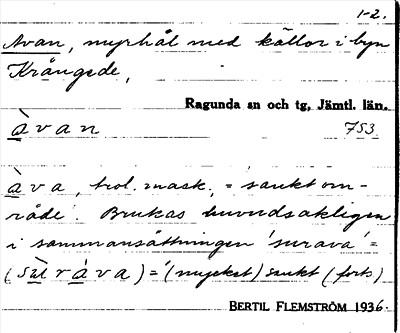 1-2.
Avan, myrhål med källor i byn
Krångede,
Ragunda sn och tg, Jämtl. län.
àvan 753
àva, trol. mask., = 'sankt om-
råde'. Brukas huvudsakligen
i sammansättningen 'surava' =
(sùràva) = '(mycket) sankt (forts)
BERTIL FLEMSTRÖM 1936.